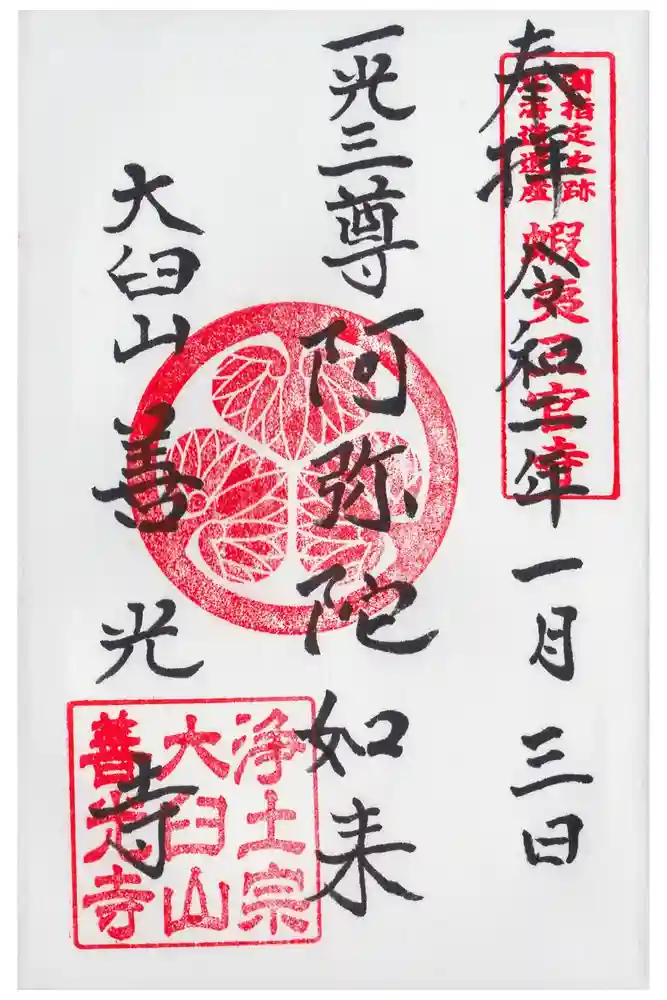 奉拝 令和二年一月三日
国指定史跡
北海道遺産
蝦夷三官寺
一光三尊阿弥陀如来
大臼山善光寺
浄土宗
大臼山
善光寺